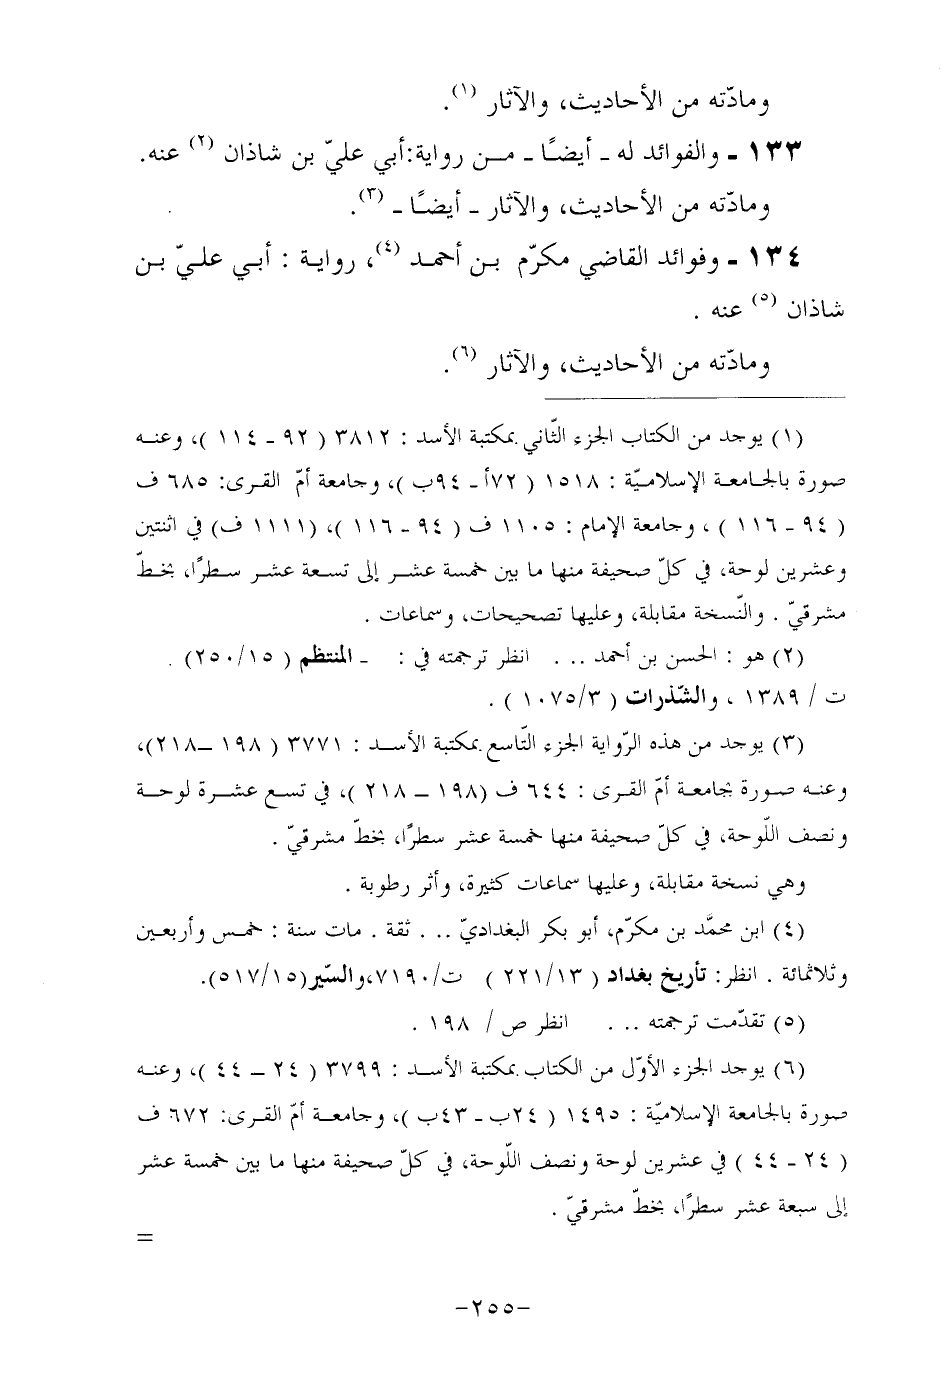 ومادّته من الأحاديث، والآثار (١).
١٣٣ - والفوائد له - أيضًا - من رواية:أبي عليّ بن شاذان (٢) عنه.
ومادّته من الأحاديث، والآثار - أيضًا - (٣).
١٣٤ - وفوائد القاضي مكرّم بن أحمد (٤)، رواية : أبي عليّ بن
شاذان (٥) عنه .
ومادّته من الأحاديث، والآثار (٦).
(١) يوجد من الكتاب الجزء الثّاني بمكتبة الأسد : ٣٨١٢ ( ٩٢ - ١١٤ )، وعنه
صورة بالجامعة الإسلاميّة : ١٥١٨ ( ٧٢أ - ٩٤ب )، وجامعة أمّ القرى: ٦٨٥ ف
( ٩٤ - ١١٦ ) ، وجامعة الإمام : ١١٠٥ ف ( ٩٤ - ١١٦ )، (١١١١ ف) في اثنتين
وعشرين لوحة، في كلّ صحيفة منها ما بين خمسة عشر إلى تسعة عشر سطرًا، بخطّ
مشرقيّ . والنّسخة مقابلة، وعليها تصحيحات، وسماعات .
(٢) هو : الحسن بن أحمد .. . انظر ترجمته في : - المنتظم ( ١٥/ ٢٥٠) .
ت / ١٣٨٩ ، والشّذرات ( ٣/ ١٠٧٥ ) .
(٣) يوجد من هذه الرّواية الجزء التّاسع بمكتبة الأسد : ٣٧٧١ ( ١٩٨ –٢١٨)،
وعنه صورة بجامعة أمّ القرى : ٦٤٤ ف (١٩٨ – ٢١٨ )، في تسع عشرة لوحة
ونصف اللّوحة، في كلّ صحيفة منها خمسة عشر سطرًا، بخطّ مشرقيّ .
وهي نسخة مقابلة، وعليها سماعات كثيرة، وأثر رطوبة .
(٤) ابن محمَّد بن مكرّم، أبو بكر البغداديّ .. . ثقة . مات سنة : خمس وأربعين
وثلاثمائة . انظر: تأريخ بغداد ( ١٣/ ٢٢١ ) ت/٧١٩٠،والسّير(١٥/ ٥١٧).
(٥) تقدّمت ترجمته .. . انظر ص / ١٩٨ .
(٦) يوجد الجزء الأوّل من الكتاب بمكتبة الأسد : ٣٧٩٩ ( ٢٤ – ٤٤ )، وعنه
صورة بالجامعة الإسلاميّة : ١٤٩٥ ( ٢٤ب - ٤٣ب )، وجامعة أمّ القرى: ٦٧٢ ف
( ٢٤ - ٤٤ ) في عشرين لوحة ونصف اللّوحة، في كلّ صحيفة منها ما بين خمسة عشر
إلى سبعة عشر سطرًا، بخطّ مشرقيّ .
=
-٢٥٥-